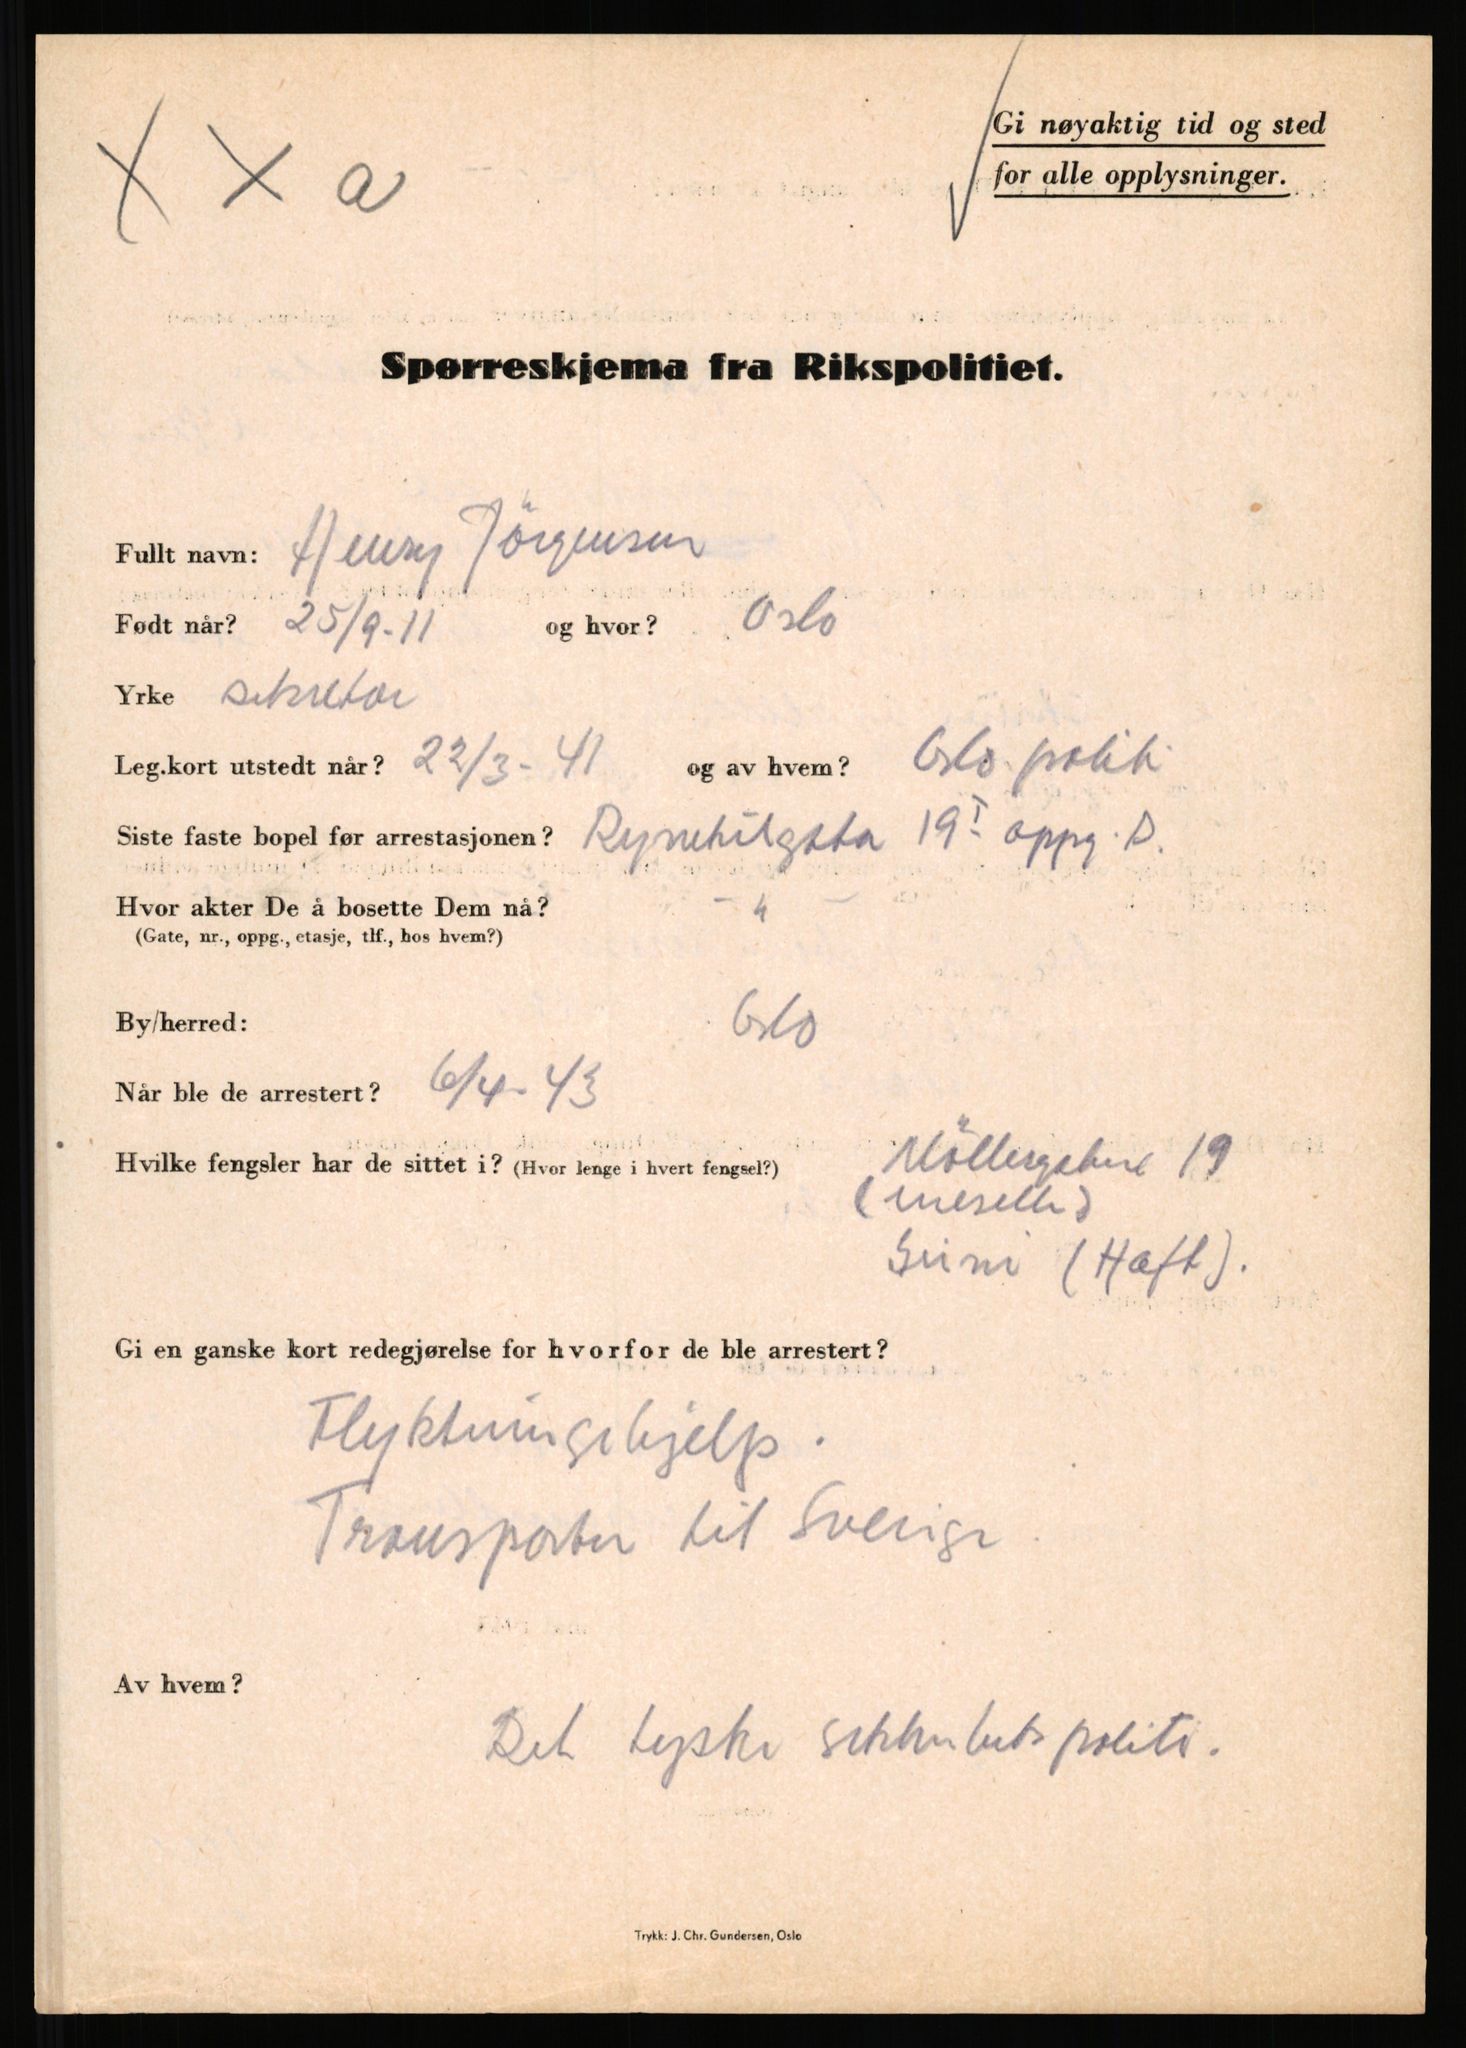 X X a
Gi nøyaktig tid og sted
for alle opplysninger.
Spørreskjema fra Rikspolitiet.
Fullt navn: Henry Jörgensen
Født når? 25/9-11 og hvor? Oslo
Yrke sekretær
Leg.kort utstedt når? 22/3-41 og av hvem? Oslo politi
Siste faste bopel før arrestasjonen? 19 I oppg. D.
Hvor akter De å bosette Dem nå? - " -
(Gate, nr., oppg., etasje, tlf., hos hvem?)
By/herred: Oslo
Når ble de arrestert? 6/4-43
Hvilke fengsler har de sittet i? (Hvor lenge i hvert fengsel?) Möllergatene 19
(enecelle)
Grini (Haft).
Gi en ganske kort redegjørelse for hvorfor de ble arrestert?
Flyktningehjelp.
Transporter til Sverige.
Av hvem?
Det tyske sikkerhetspoliti.
Trykk: J. Chr. Gundersen, Oslo